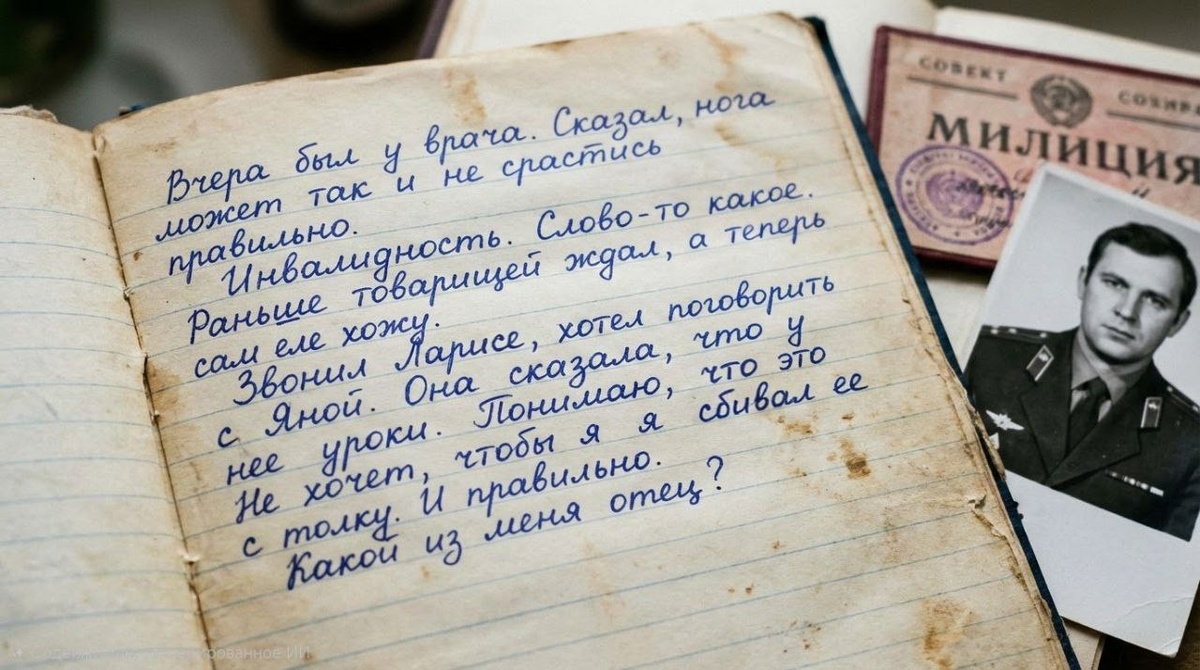 Вчера был у врача. Сказал, нога
может так и не срастись
правильно.
Инвалидность. Слово-то какое.
Раньше товарищей ждал, а теперь
сам еле хожу.
Звонил Ларисе, хотел поговорить
с Яной. Она сказала, что у
нее уроки. Понимаю, что это
Не хочет, чтобы я я сбивал ее
с толку. И правильно.
Какой из меня отец?
СОВЕКТ
МИЛИЦИЯ